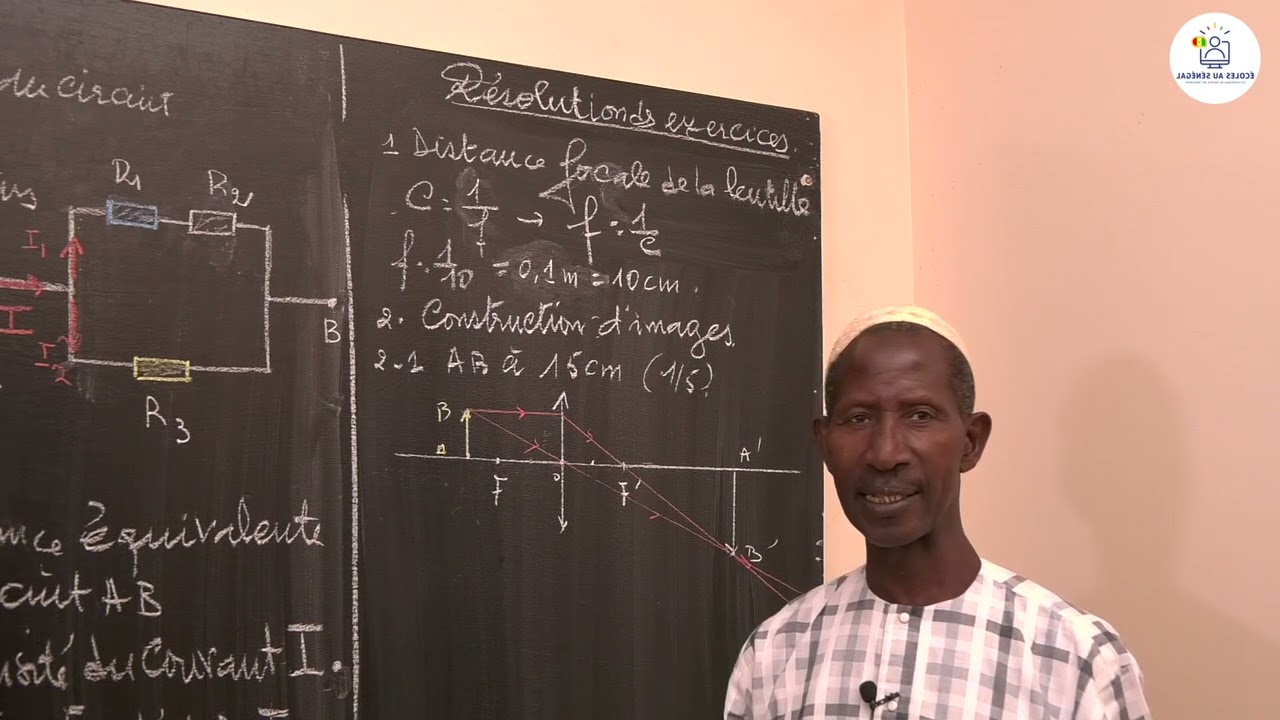 du circuit
R1
R2
I1
I
I2
B
R3
ance équivalente
cuit AB
sité du courant I.
Résolution ds exercices.
1 Distance focale de la lentille
C = 1/f → f = 1/C
f = 1/10 = 0,1m = 10cm.
2. Construction d'images
2-1 AB à 15cm (1/5)
B
A'
F
O
F'
B'
ÉCOLES AU SÉNÉGAL